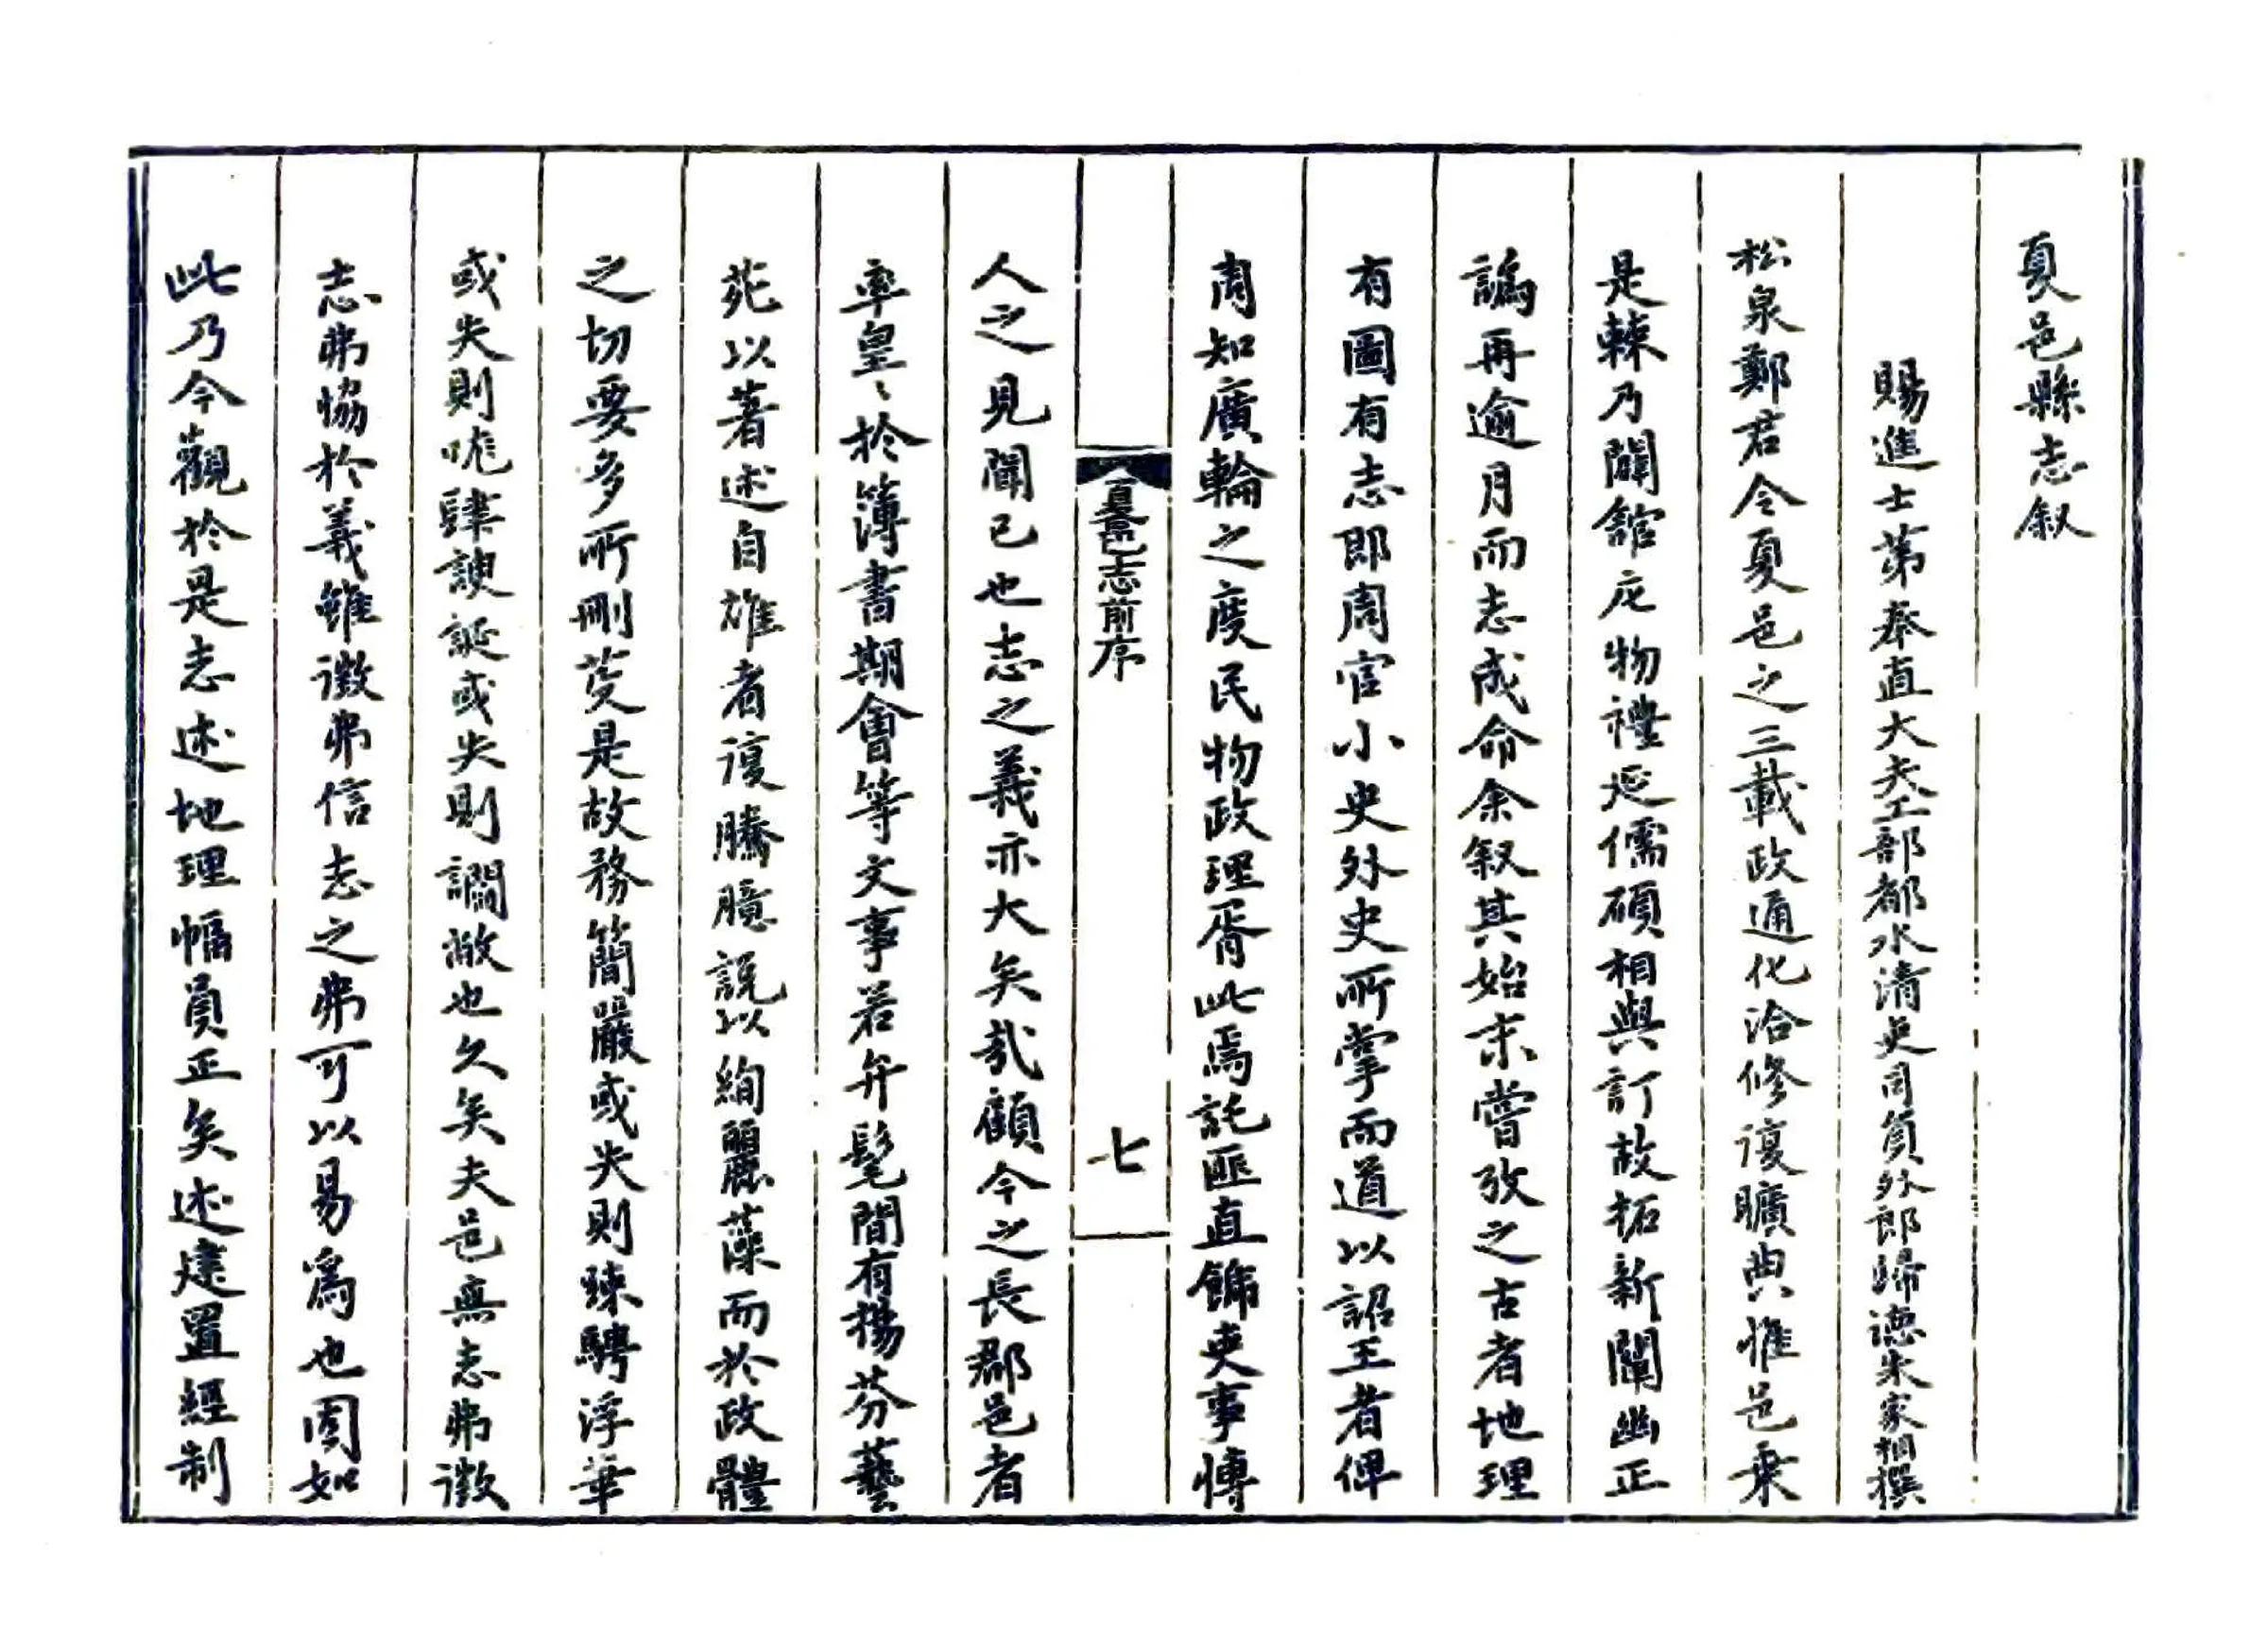 夏邑縣志叙
賜進士第奉直大夫工部都水清吏司員外郎歸德朱家相撰
松泉鄭君令夏邑之三載政通化洽修復曠典惟邑乗
是棘乃闢舘庀物禮延儒碩相與訂故拓新闡幽正
譌再逾月而志成命余叙其始末嘗攷之古者地理
有圖有志即周官小史外史所掌而道以詔王者俾
周知廣輪之度民物政理胥此焉託匪直飾吏事愽
夏邑志前序
七
人之見聞已也志之義亦大矣哉顧今之長郡邑者
率皇〻於簿書期會等文事若弁髦間有揚芬藝
苑以著述自雄者復騰臆説以絢麗藻而於政體
之切要多所刪芟是故務簡嚴或失則踈騁浮華
或失則哤肆諛誕或失則譋敝也久矣夫邑無志弗徵
志弗恊於義雖徵弗信志之弗可以易爲也固如
此乃今觀於是志述地理幅員正矣述建置經制